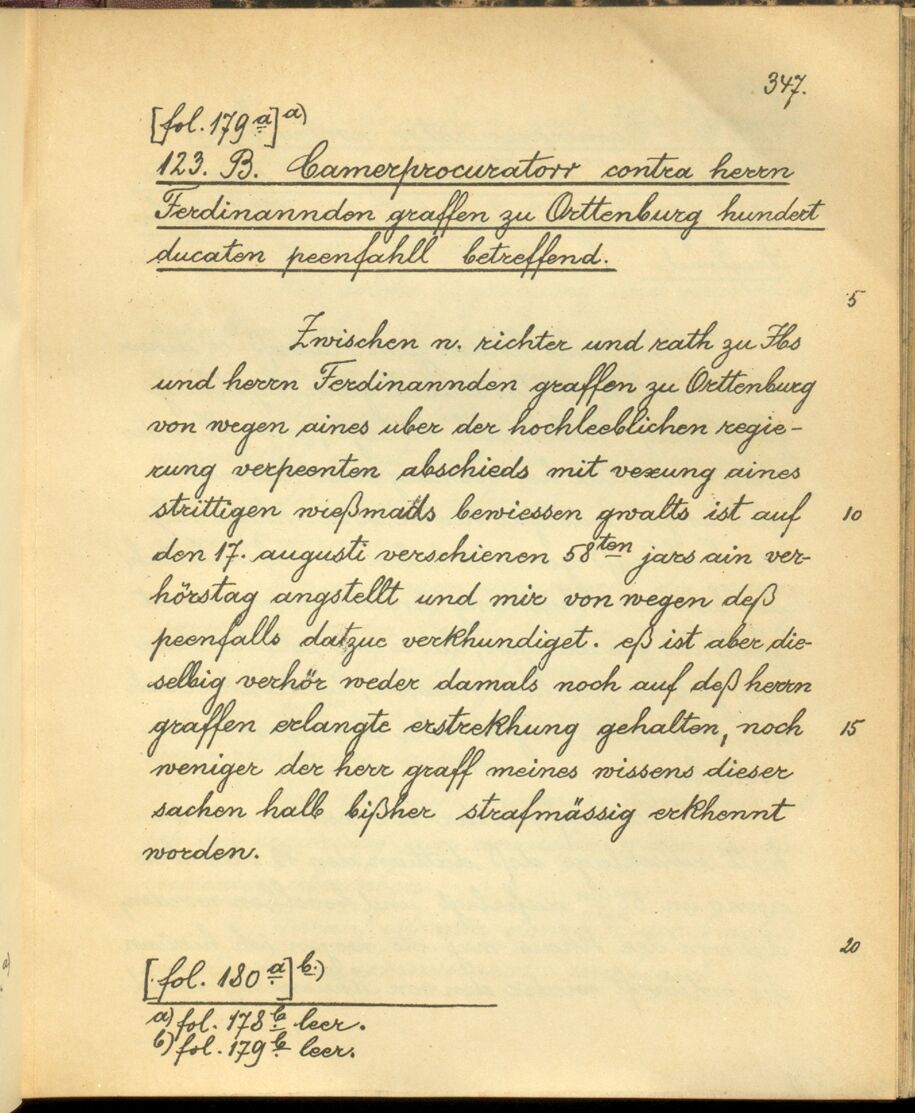 347.
[fol. 179 a] a)
123. B. Camerprocuratorr contra herrn
Ferdinannden graffen zu Orttenburg hundert
ducaten peenfahll betreffend.
5
Zwischen n. richter und rath zu Ybs
und herrn Ferdinannden graffen zu Orttenburg
von wegen aines uber der hochleeblichen regie-
rung verpeenten abschieds mit vexung aines
strittigen wießmads bewiessen gwalts ist auf
10
den 17. augusti verschienen 58ten jars ain ver-
hörstag angstellt und mir von wegen deß
peenfalls datzue verkhundiget. eß ist aber die-
selbig verhör weder damals noch auf deß herrn
graffen erlangte erstrekhung gehalten, noch
15
weniger der herr graff meines wissens dieser
sachen halb bißher strafmässig erkhennt
worden.
20
[fol. 180 a] b)
a) fol. 178 b leer.
b) fol. 179 b leer.